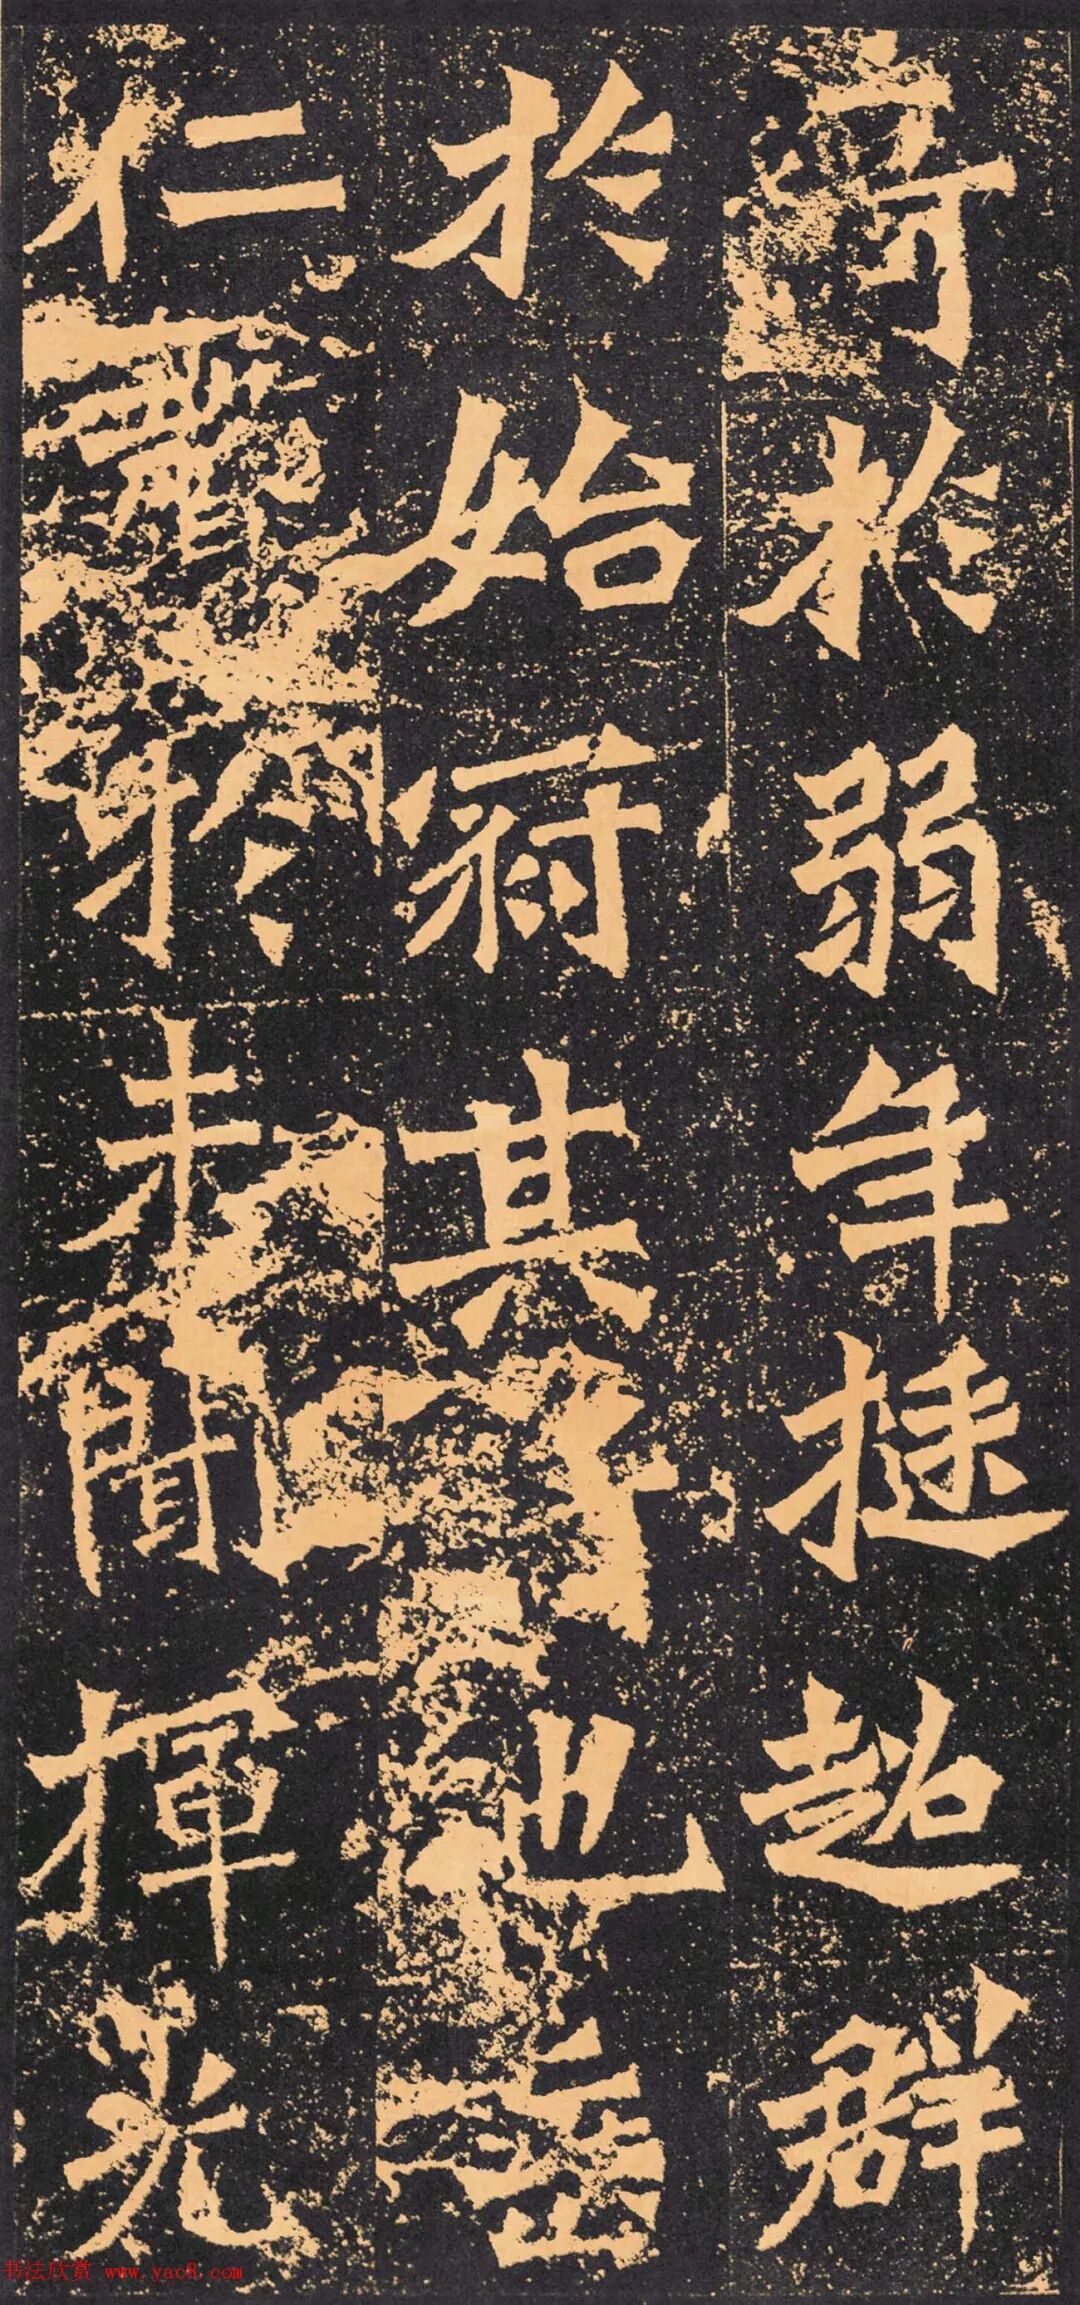 奇於弱年挺超群
於始府其也岳
仁於未聞揮光
书法欣赏 www.yac8.com